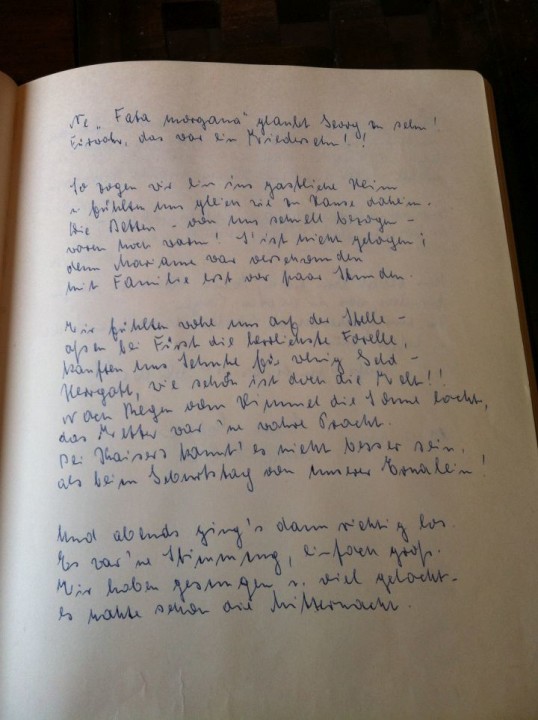 Ne „Fata morgana" glaubt Georg zu sehn!
Fürwahr, das war ein Wiedersehn!!
So zogen wir hin ins gastliche Heim
u. fühlten uns gleich wie zu Hause daheim.
Die Betten – von uns schnell bezogen –
waren noch warm! S'ist nicht gelogen;
denn Marianne war verschwunden
mit Familie erst vor paar Stunden.
Wir fühlten wohl uns auf der Stelle –
aßen bei Fürst die herrlichste Forelle,
kauften uns Schuhe für wenig Geld –
Herrgott, wie schön ist doch die Welt!!
Nach Regen vom Himmel die Sonne lacht,
das Wetter war 'ne wahre Pracht.
Bei Kaisers konnt' es nicht besser sein,
als beim Geburtstag von unserer Ernalein!
Und abends ging's dann richtig los.
Es war 'ne Stimmung, einfach groß.
Wir haben gesungen u. viel gelacht –
es nahte schon die Mitternacht.